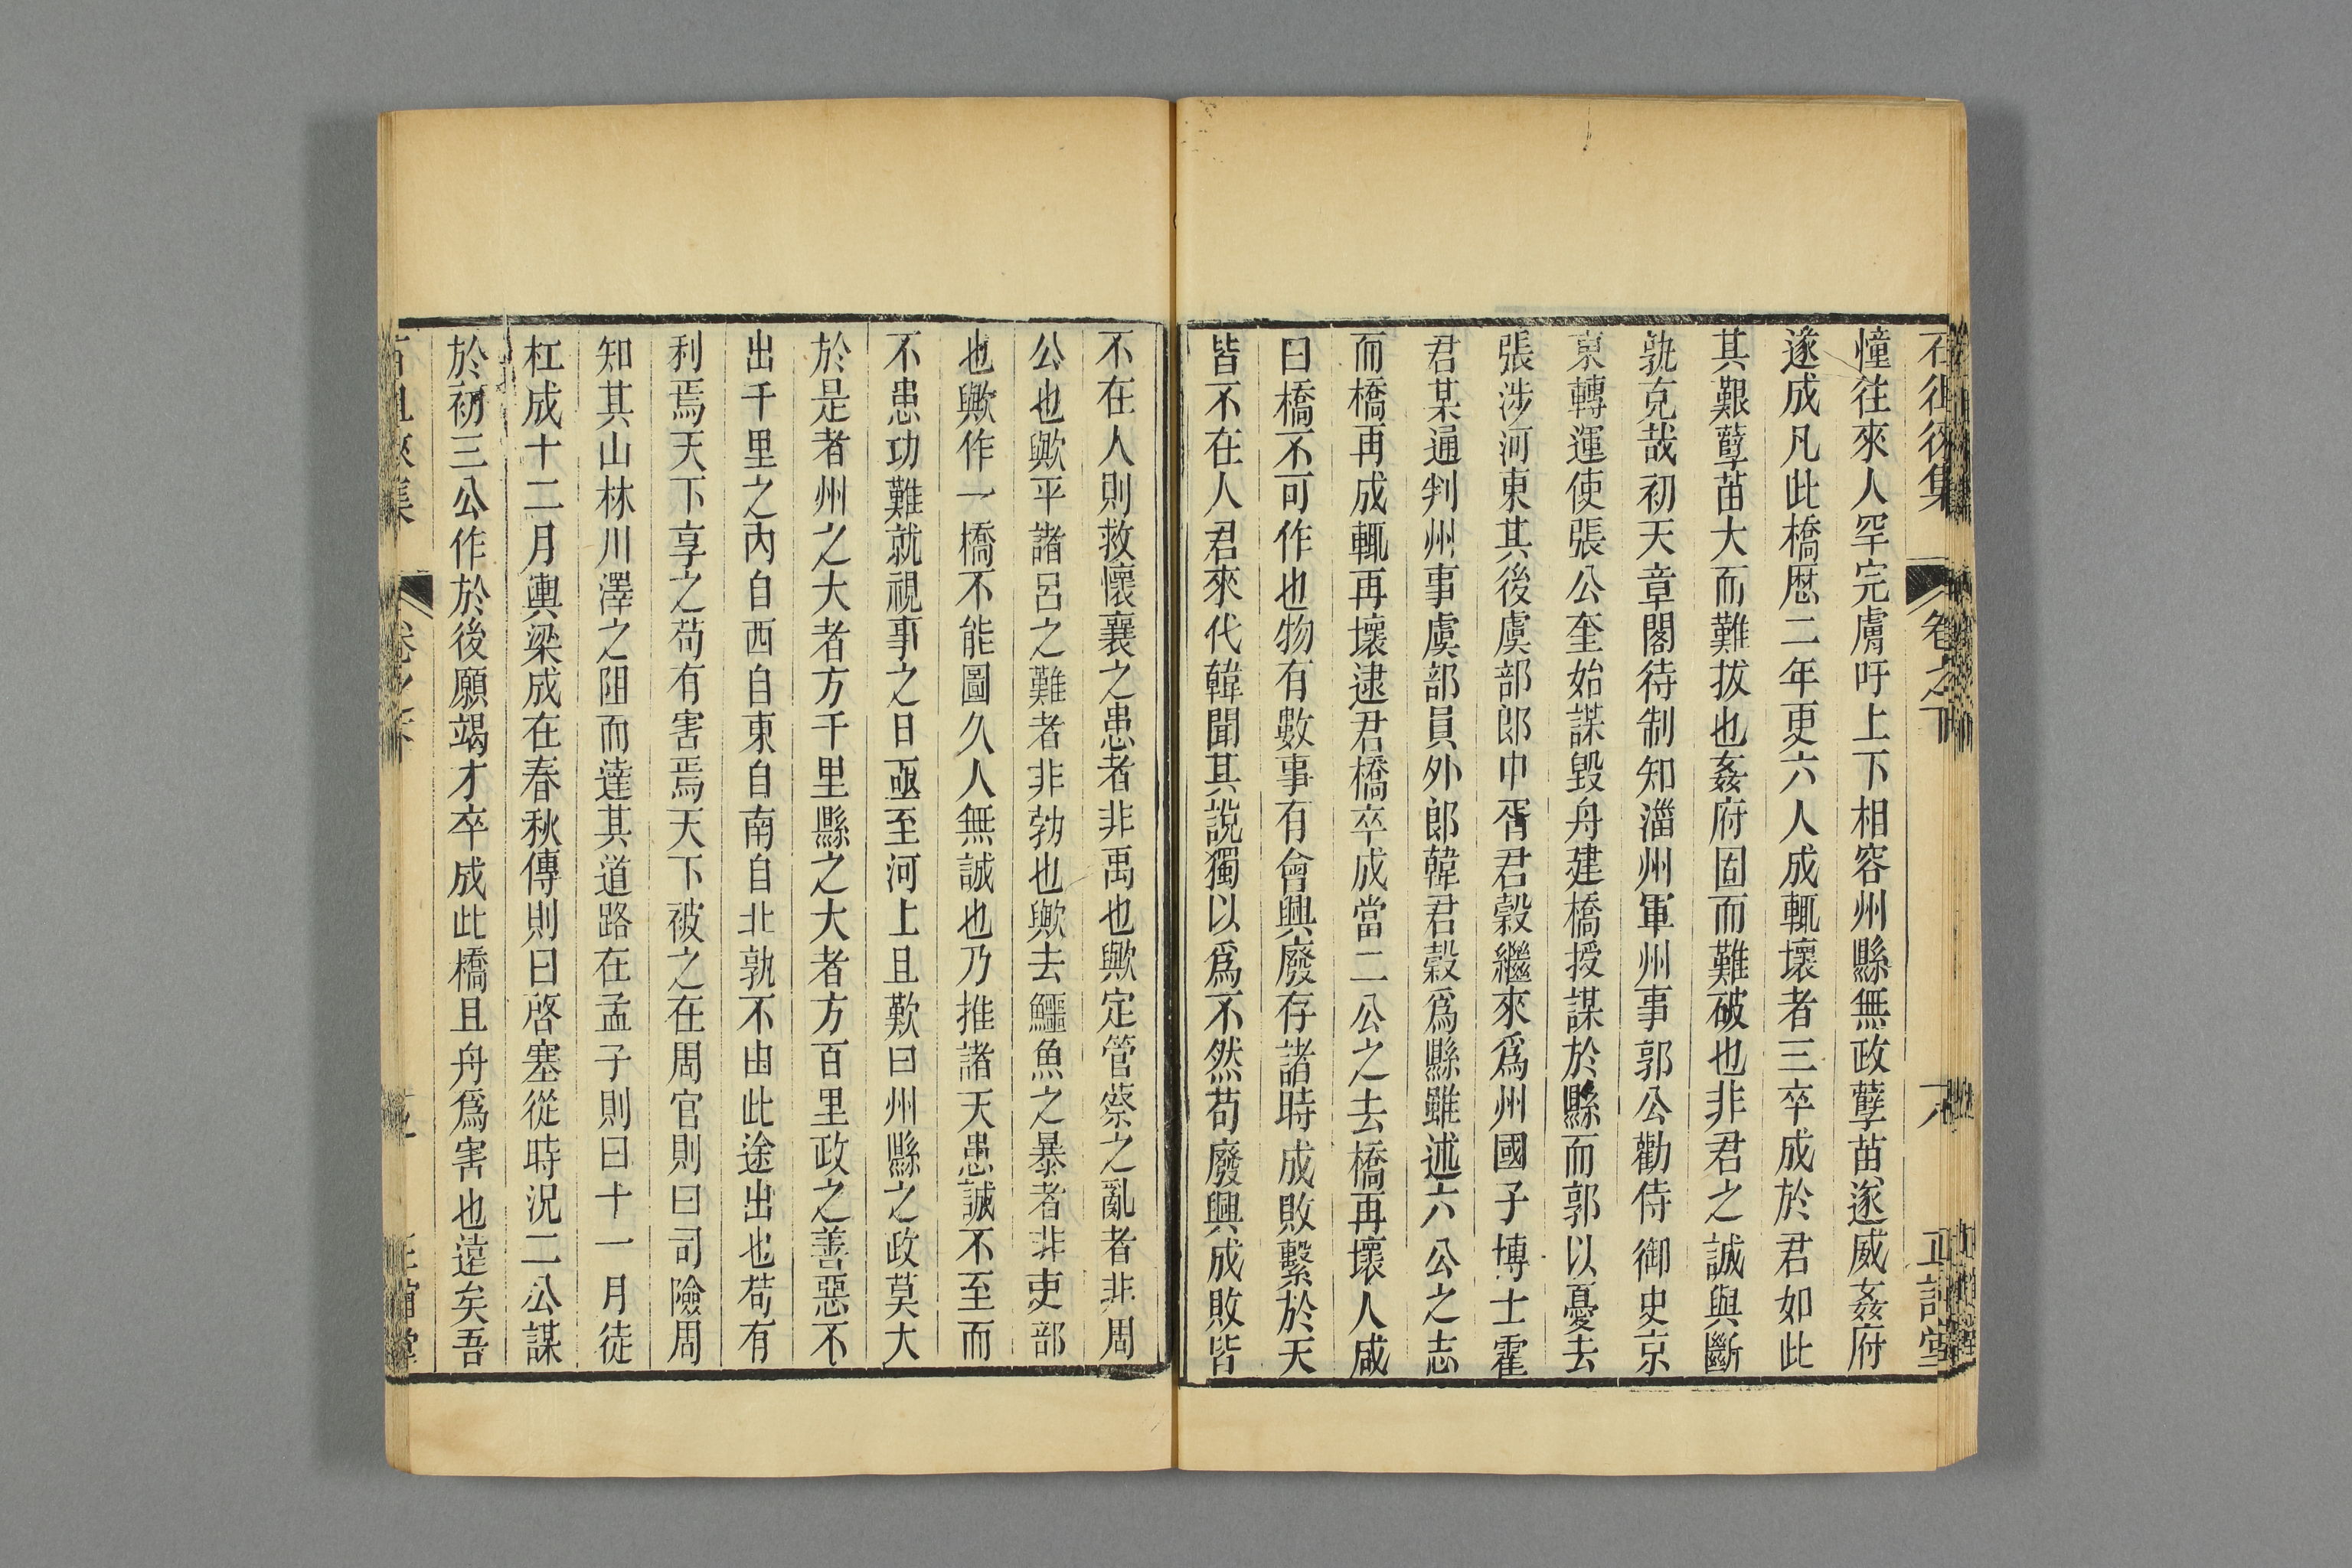 石徂徠集
卷之下
六
正誼堂
憧往來人罕完膚吁上下相容州縣無政孽苗遂威姦府
遂成凡此橋歴二年更六人成輒壞者三卒成於君如此
其艱孽苗大而難拔也姦府固而難破也非君之誠與斷
孰克哉初天章閣待制知淄州軍州事郭公勸侍御史京
東轉運使張公奎始謀毀舟建橋授謀於縣而郭以憂去
張涉河東其後虞部郎中胥君縠繼來爲州國子博士霍
君某通判州事虞部員外郎韓君縠爲縣雖述六公之志
而橋再成輒再壞逮君橋卒成當二公之去橋再壞人咸
曰橋不可作也物有數事有會興廢存諸時成敗繫於天
皆不在人君來代韓聞其說獨以爲不然苟廢興成敗皆
不在人則救懷襄之患者非禹也歟定管蔡之亂者非周
公也歟平諸呂之難者非勃也歟去鱷魚之暴者非吏部
也歟作一橋不能圖久人無誠也乃推諸天患誠不至而
不患功難就視事之日亟至河上且歎曰州縣之政莫大
於是者州之大者方千里縣之大者方百里政之善惡不
出千里之內自西自東自南自北孰不由此途出也苟有
利焉天下享之苟有害焉天下被之在周官則曰司險周
知其山林川澤之阻而達其道路在孟子則曰十一月徒
杠成十二月輿梁成在春秋傳則曰啓塞從時況二公謀
於初三公作於後願竭才卒成此橋且舟爲害也遠矣吾